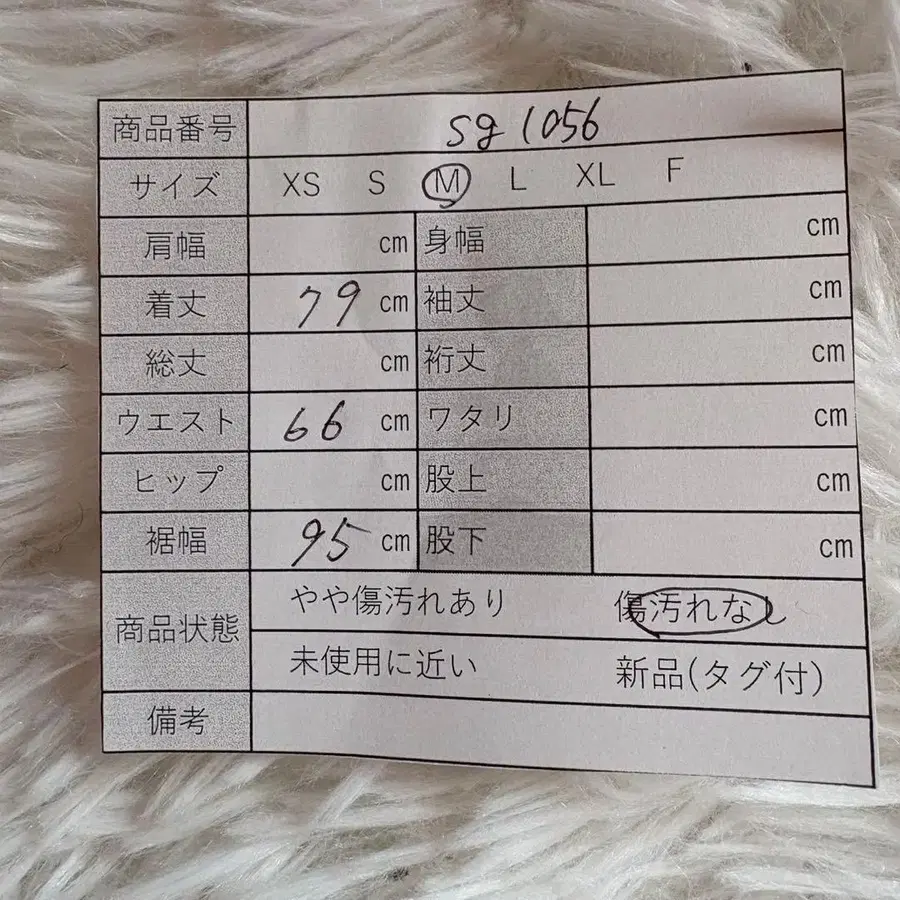 商品番号 sg1056
サイズ XS S M L XL F
肩幅 cm 身幅 cm
着丈 79 cm 袖丈 cm
総丈 cm 裄丈 cm
ウエスト 66 cm ワタリ cm
ヒップ cm 股上 cm
裾幅 95 cm 股下 cm
商品状態 やや傷汚れあり 傷汚れなし
未使用に近い 新品(タグ付)
備考